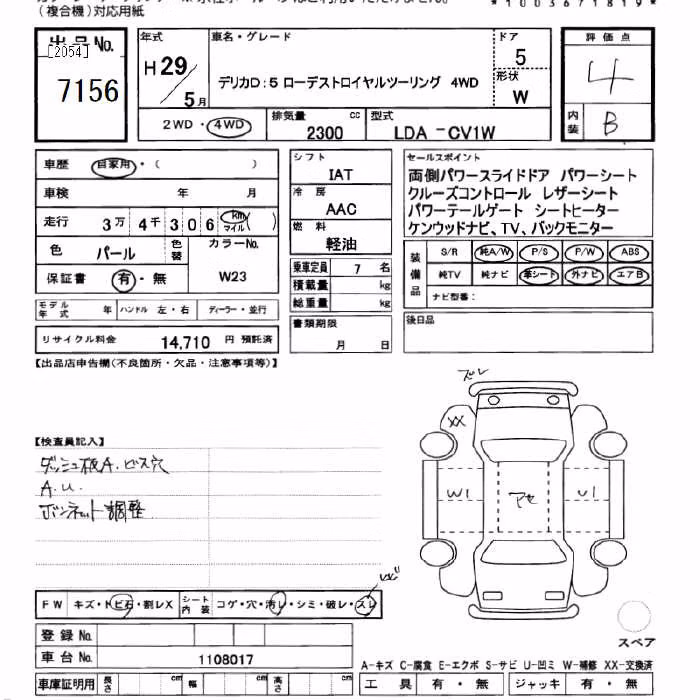 (複合機)対応用紙
*1003671819*
出品No.
[2054]
7156
年式
H29
5月
車名・グレード
デリカD:5 ローデストロイヤルツーリング 4WD
ドア
5
形状
W
2WD・4WD
排気量
cc
2300
型式
LDA -CV1W
評価点
4
内装
B
車歴
自家用・( )
車検
年 月
走行
3万 4千 3 0 6 km マイル ( )
色
パール
色替
カラーNo.
W23
保証書
有・無
モデル年式
年
ハンドル 左・右
ディーラー・並行
リサイクル料金
14,710 円 預託済
シフト
IAT
冷房
AAC
燃料
軽油
乗車定員 7 名
積載量 kg
総重量 kg
書類期限
月 日
セールスポイント
両側パワースライドドア パワーシート
クルーズコントロール レザーシート
パワーテールゲート シートヒーター
ケンウッドナビ、TV、バックモニター
装備品
S/R 純A/W P/S P/W ABS
純TV 純ナビ 革シート 外ナビ エアB
ナビ型番:
後日品
【出品店申告欄(不良箇所・欠品・注意事項等)】
【検査員記入】
ダッシュ板A.ビス穴
A.U.
ボンネット調整
ズレ
XX
W1
アセ
U1
FW
キズ・トビ石・割レX
シート内装
コゲ・穴・汚レ・シミ・破レ・スレ
登録No.
車台No.
1108017
車庫証明用
長さ cm
幅 cm
高さ cm
スペア
A-キズ C-腐食 E-エクボ S-サビ U-凹ミ W-補修 XX-交換済
工具 有・無
ジャッキ 有・無